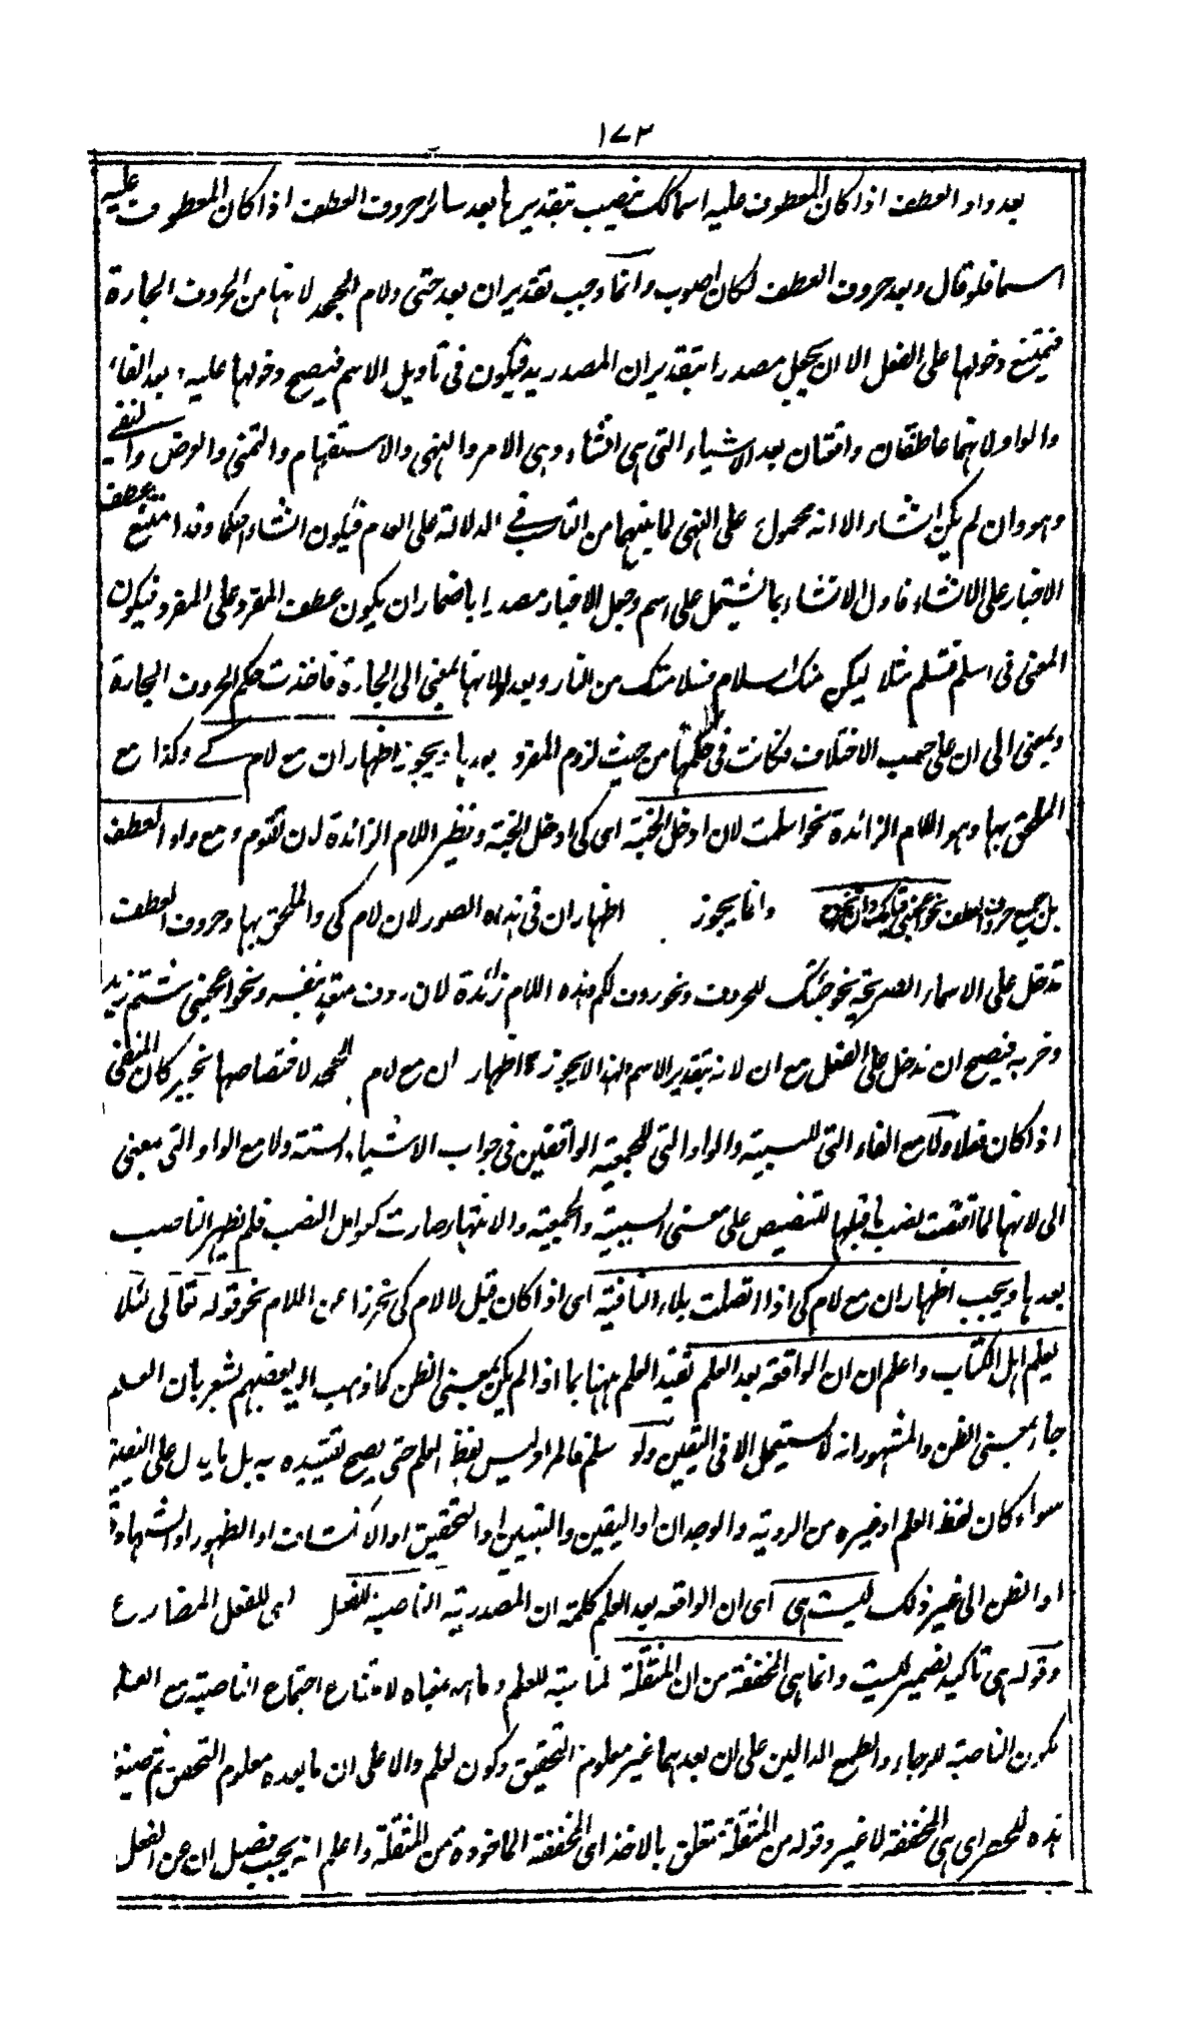 ١٧٣
بعد واو العطف اذا كان المعطوف عليه اسما كك تنصب بتقديرها بعد سائر حروف العطف اذا كان المعطوف عليه
اسما فلو قال وبعد حروف العطف لكان اصوب وانما وجب تقدير ان بعد حتى ولام الجحد لانها من الحروف الجارة
فيمتنع دخولها على الفعل الا ان يجعل مصدرا بتقدير ان المصدرية فيكون فى تاويل الاسم فيصح دخولها عليه وبعد الفاء
والواو لانهما عاطفتان واقعتان بعد الاشياء التى هى انشاء وهى الامر والنهى والاستفهام والتمنى والعرض والنفى
وهو وان لم يكن انشاء الا انه محمول على النهى لما بينهما من التقارب فى الدلالة على العدم فيكون انشاء حكما وقد امتنع عطف
الاخبار على الانشاء فاول الانشاء بما يشتمل على اسم وجعل الاخبار مصدرا باضمار ان يكون عطف المفرد على المفرد فيكون
المعنى فى اسلم فتسلم مثلا ليكن منك اسلام فسلامتك من النار وبعد او لانها بمعنى الى الجارة فاخذت حكم الحروف الجارة
وبمعنى الى ان على حسب الاختلاف فكانت فى حكمها من حيث لزوم المفرد بعدها ويجوز اظهار ان مع لام كے وكذا مع
الملحق بها وهو اللام الزائدة نحو اسلمت لان ادخل الجنة اى كى ادخل الجنة ونظير اللام الزائدة لان تقوم ومع واو العطف
بل جميع حروف العطف نحو اعجبنى قيامك وان تخرج وانما يجوز اظهار ان فى هذه الصور لان لام كى والملحق بها وحروف العطف
تدخل على الاسماء الصريحة نحو جئتك للحروف ونحو ردف لكم هذه اللام زائدة لان ردف متعد بنفسه ونحو اعجبنى شتم زيد
وضربه فيصح ان تدخل على الفعل مع ان لانه بتقدير الاسم لهذا لا يجوز اظهار ان مع لام الجحد لاختصاصها بخبر كان المنفى
اذا كان فعلا ولا مع الفاء التى للسببية والواو التى للجمعية الواقعتين فى جواب الاشياء الستة ولا مع الواو التى بمعنى
الى لانها لما اقتضت نصب ما قبلها للتنصيص على معنى السببية والجمعية والانتهاء صارت كعوامل النصب فلم يظهر الناصب
بعدها ويجب اظهار ان مع لام كى اذا اتصلت بلاء النافية اى اذا كان قبل لا لام كى تحرزا عن اللام نحو قوله تعالى لئلا
يعلم اهل الكتاب واعلم ان ان الواقعة بعد العلم تقيد العلم ههنا بما اذا لم يكن بمعنى الظن كما ذهب اليه بعضهم يشعر بان العلم
جاء بمعنى الظن والمشهور انه لا يستعمل الا فى اليقين ولو سلم فالمراد ليس لفظ العلم حتى يصح تقييده به بل ما يدل على اليقين
سواء كان لفظ العلم او غيره من الروية والوجدان او اليقين والتبيين او التحقيق او الانكشاف او الظهور او الشهادة
او الظن الى غير ذلك ليست هى اى ان الواقعة بعد العلم كلمة ان المصدرية الناصبة للفعل اى للفعل المضارع
وقوله هى تاكيد لضمير ليست وانما هى المخففة من ان المثقلة لمناسبة للعلم معناه لامتناع اجتماع الناصبة مع العلم
لكون الناصبة للرجاء والطمع الدالين على ان بعدهما غير معلوم التحقيق وكون لعلم دالا على ان ما بعده معلوم التحقق ثم صيغة
هذه للحصر اى هى المخففة لا غير وقوله من المثقلة متعلق بالاخذ اى المخففة الماخوذة من المثقلة واعلم انه يجب فصيل ان عن الفعل